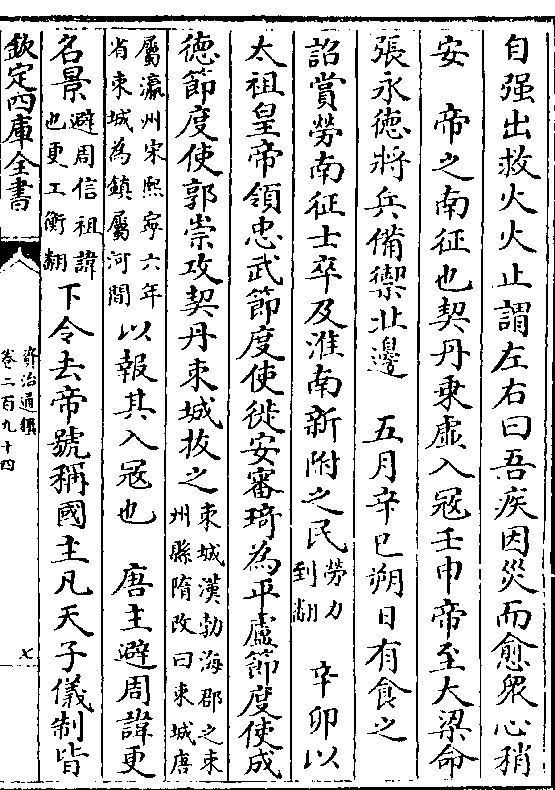 自强出救火火止謂左右曰吾疾因災而愈衆心稍
安　帝之南征也契丹乘虛入冦壬申帝至大梁命
張永德將兵備禦北邊　五月辛巳朔日有食之
詔賞勞南征士卒及淮南新附之民勞力到翻　辛卯以
太祖皇帝領忠武節度使徙安審琦為平盧節度使成
德節度使郭崇攻契丹束城拔之束城漢勃海郡之束州縣隋改曰束城唐
屬瀛州宋熙寧六年省束城為鎮屬河間以報其入冦也　唐主避周諱更
名景避周信祖諱也更工衡翻下令去帝號稱國主凡天子儀制皆
欽定四庫全書
資治通鑑
卷二百九十四
七